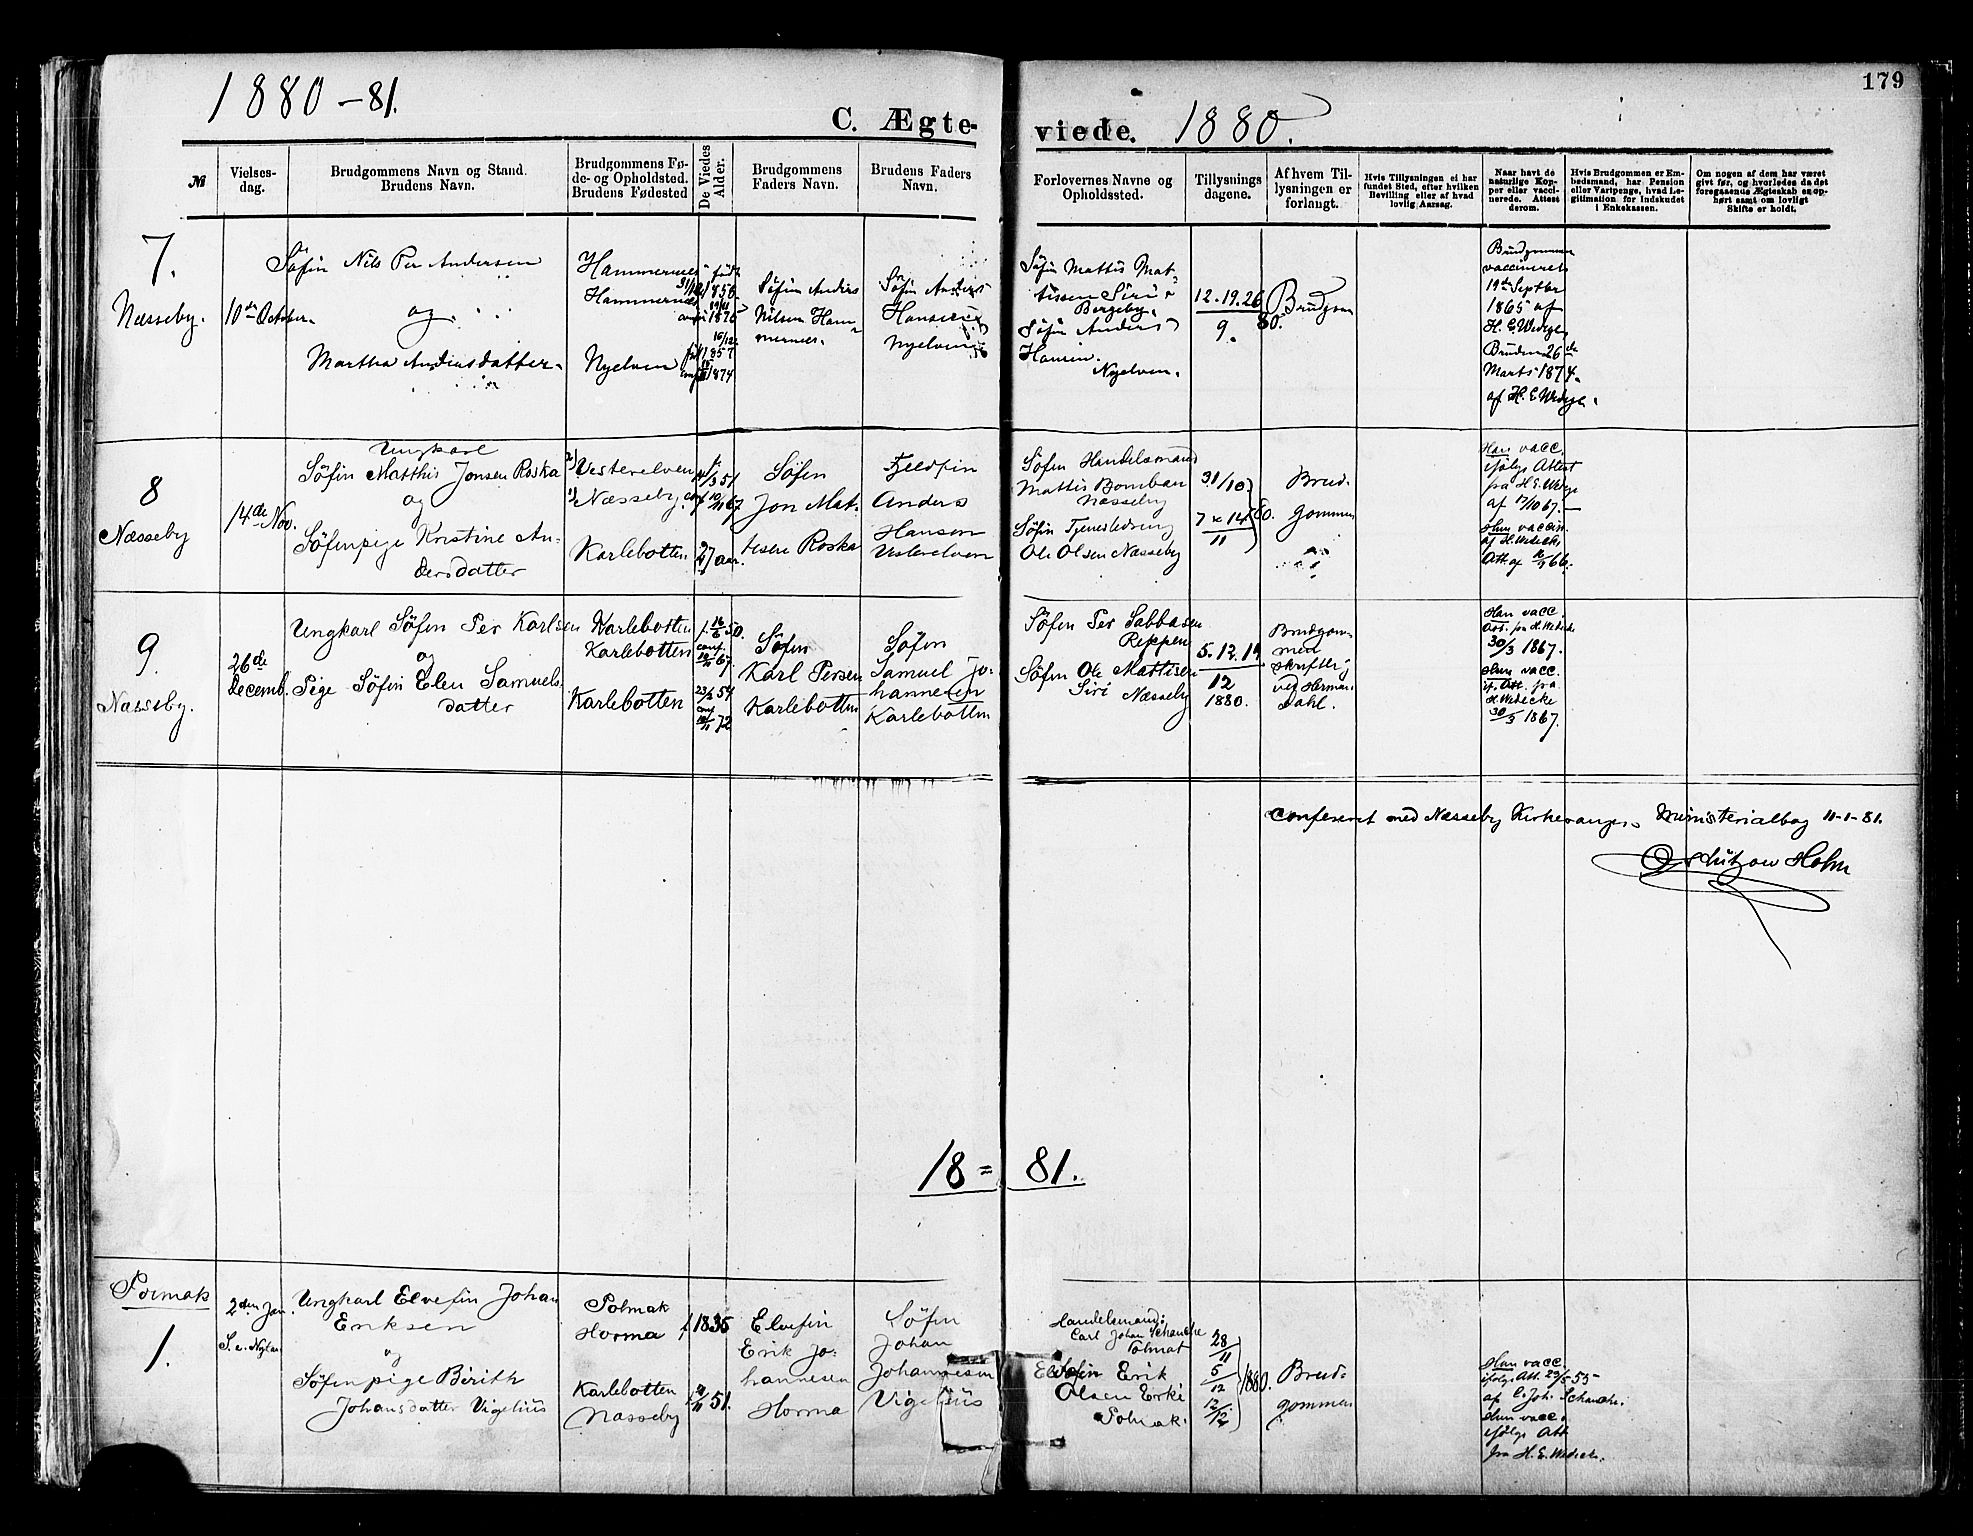 179
1880 – 81.
C. Ægte-
viede. 1880.
№
Vielses-
dag.
Brudgommens Navn og Stand.
Brudens Navn.
Brudgommens Fø-
de- og Opholdsted.
Brudens Fødested
De Viedes
Alder.
Brudgommens
Faders Navn.
Brudens Faders
Navn.
Forlovernes Navne og
Opholdssted.
Tillysnings
dagene.
Af hvem Til-
lysningen er
forlangt.
Hvis Tillysningen ei har
fundet Sted, efter hvilken
Bevilling eller af hvad
lovlig Aarsag.
Naar havt de
naturlige Kop-
per eller vacci-
nerede. Attest
derom.
Hvis Brudgommen er Em-
bedsmand, har Pension
eller Vartpenge, hvad Le-
gitimation for Indskudet
i Enkekassen.
Om nogen af dem har været
givt før, og hvorledes da det
foregaaende Ægteskab er op-
hørt samt om lovligt
Skifte er holdt.
7.
Næsseby.
10de October
Söfin Nils Per Andersen
og
Martha Andersdatter
Hammernæs
Hammernæs
Nyelven
født
1856
1875
1857
1874
Söfin Anders
Nilsen Ham-
mernæs.
Söfin Anders
Hansen
Nyelven
Söfin Mattis Mat-
tissen Siri
Bergeby.
Söfin Anders
Hansen.
Nyelven.
12. 19. 26
9. 80.
Brudgom
Brudgommen
vaccineret
19de Septbr
1865 af
H. E. Wedege
Bruden 26de
Marts 1874.
af H. E. Wedege.
8
Næsseby
14de Nov.
Ungkarl
Söfin Matthis Jonsen Roska
og
Söfinpige Kristine An-
dersdatter
2) Vesterelven
1) Næsseby.
Karlebotten
51
conf 67
27 aar.
Söfin
Jon Mat-
tesen Roska
Fjeldfin
Anders
Hansen
Vesterelven
Söfin Handelsmand
Mattis Bomban
Næsseby
Söfin
Ole Olsen Næsseby
31/10
7 & 14 80.
11
Brud-
gommen
Han vacc.
ifölge Attest
fra H. E. Wedege
af 17/10 67.
Hun vaccin.
af H. Wedeke
Att af 66.
9.
Næsseby.
26de
Decemb.
Ungkarl Söfin Per Karlsen
og
Pige Söfin Elen Samuels-
datter
Karlebotten
Karlebotten
Karlebotten
f. 16/6 50.
conf.
67.
23/3 54
conf
72
Söfin
Karl Persen
Karlebotten
Söfin
Samuel Jo-
hannesen
Karlebotten
Söfin Per Sabbasen
Reppen
Söfin Ole Mattisen
Siri Næsseby
5. 12. 19
12
1880.
Brudgom-
men
skriftlig
ved Herman
Dahl.
Han vacc.
Att. fra H. Wedeke
30/3 1867.
Hun vacc.
if. Att. fra
H. Wedeke
30/3 1867.
Confereret med Næsseby Kirkesangers Ministerialbog 11-1-81.
Lützow Holm
18 = 81.
Polmak
1.
2den Jan.
S. e. Nytaar
Ungkarl Elvefin Johan
Eriksen
og
Söfinpige Birith
Johansdatter Vigelius
Polmak
Horma
Karlebotten
Næsseby
f. 1835
51.
Elvefin
Erik Jo-
hannesen
Horma
Söfin
Johan
Johannesen
Vigelius
Handelsmand:
Carl Johan Schanche
Polmak
Elvefin Erik
Olsen Erki
Polmak.
28
11
5
12
12/12
1880.
Brud-
gommen
Han vacc.
ifölge Att. 29/5 55
af C. Joh. Schanche.
Hun vacc.
ifölge Att
fra H. E. Wedeke.